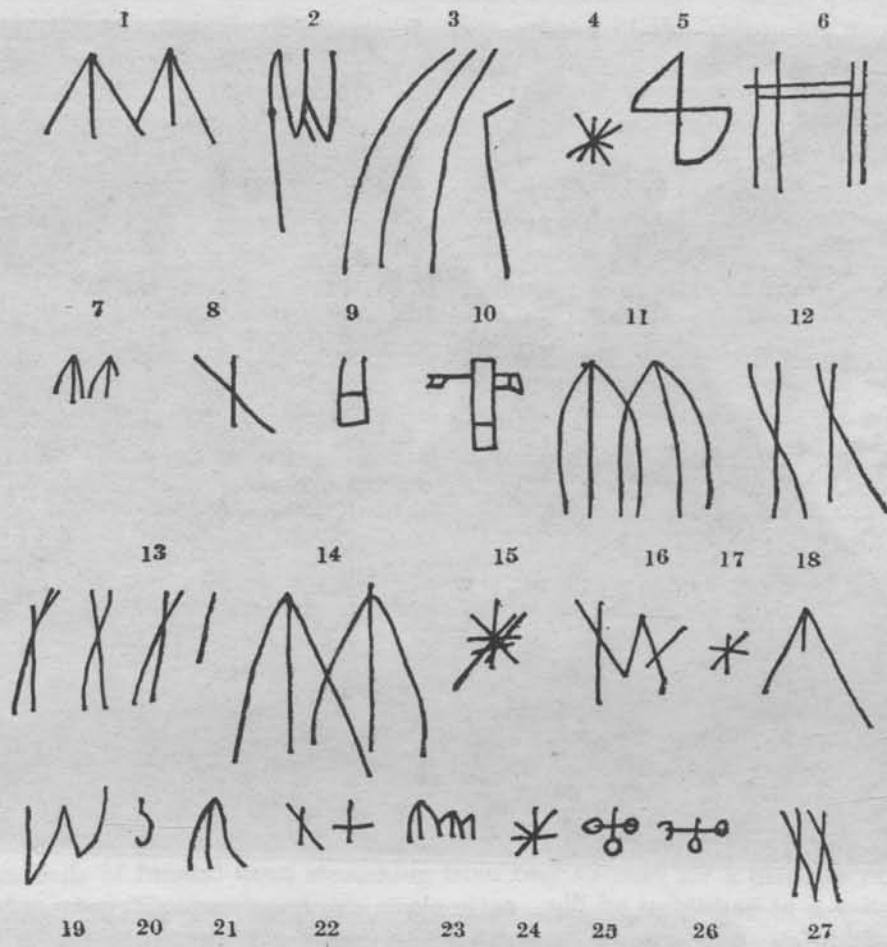 1 2 3 4 5 6
7 8 9 10 11 12
13 14 15 16 17 18
19 20 21 22 23 24 25 26 27